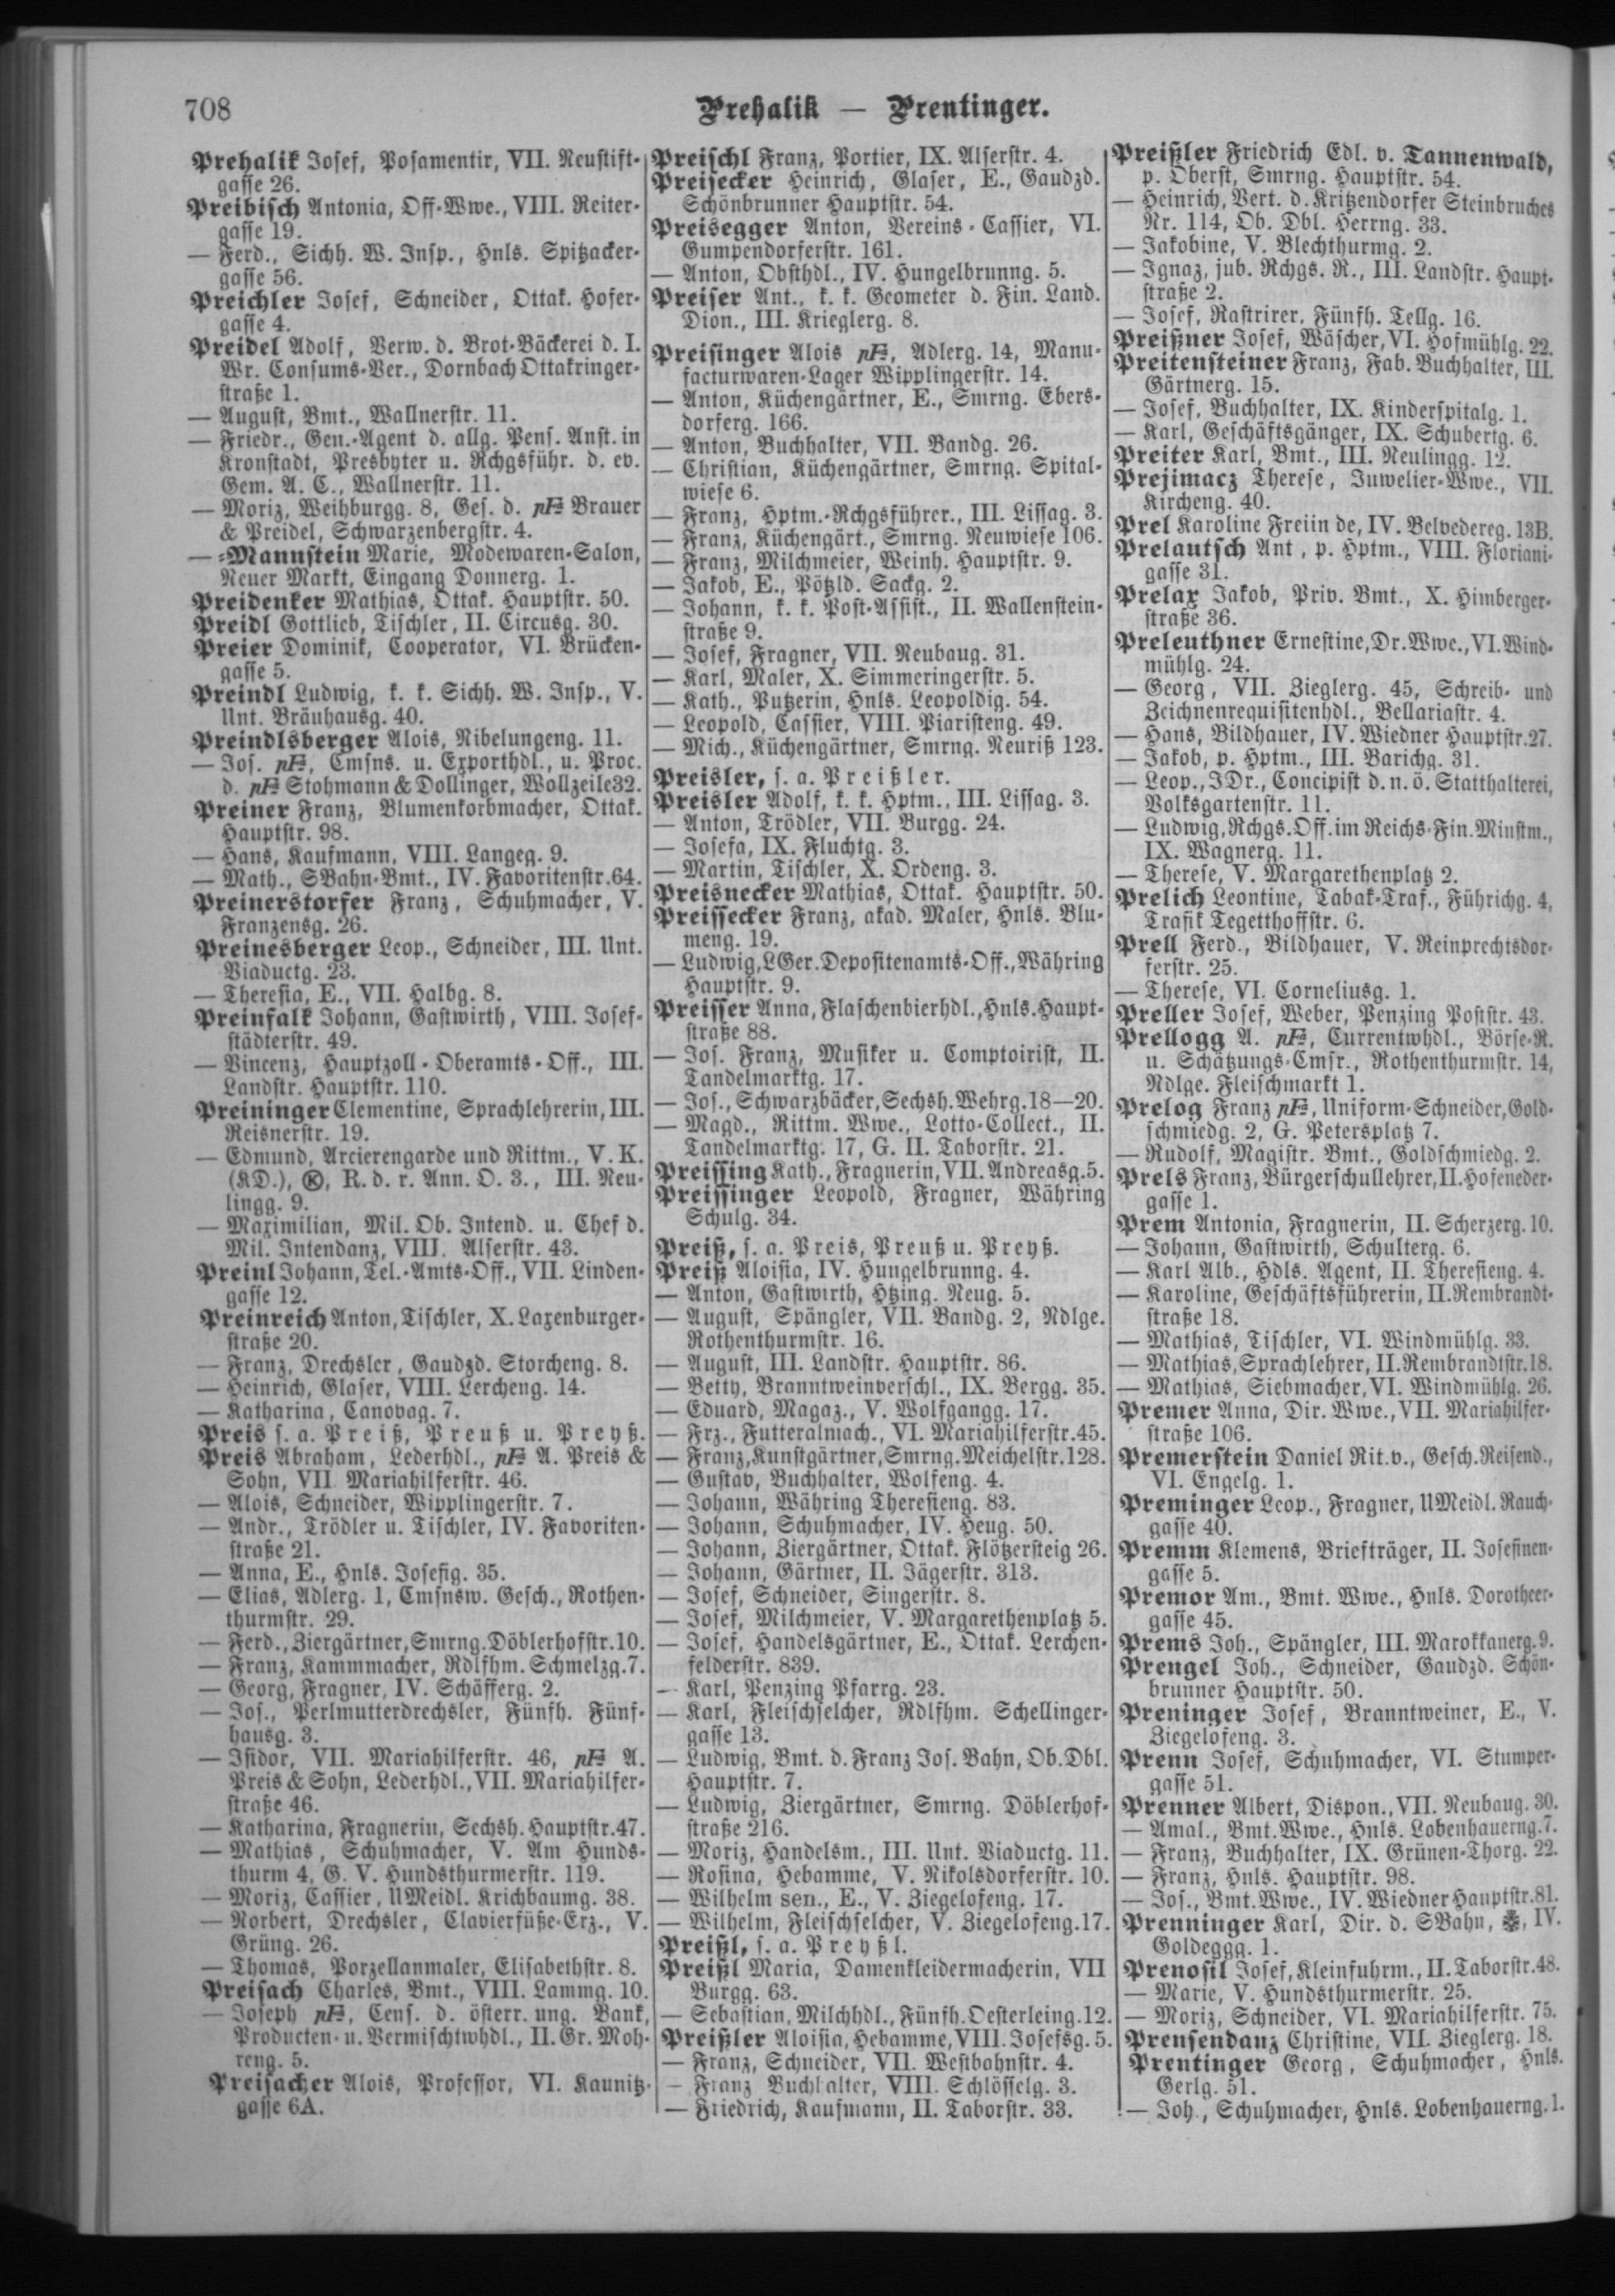 708
Prehalik — Prentinger.
Prehalik Josef, Posamentir, VII. Neustift-
gasse 26.
Preibisch Antonia, Off-Wwe., VIII. Reiter-
gasse 19.
— Ferd., Sichh. W. Insp., Hnls. Spitzacker-
gasse 56.
Preichler Josef, Schneider, Ottak. Hofer-
gasse 4.
Preidel Adolf, Verw. d. Brot-Bäckerei d. I.
Wr. Consums-Ver., Dornbach Ottakringer-
straße 1.
— August, Bmt., Wallnerstr. 11.
— Friedr., Gen.-Agent d. allg. Pens. Anst. in
Kronstadt, Presbyter u. Rchgsführ. d. ev.
Gem. A. C., Wallnerstr. 11.
— Moriz, Weihburgg. 8, Ges. d. pF Brauer
& Preidel, Schwarzenbergstr. 4.
— -Mannstein Marie, Modewaren-Salon,
Neuer Markt, Eingang Donnerg. 1.
Preidenker Mathias, Ottak. Hauptstr. 50.
Preidl Gottlieb, Tischler, II. Circusg. 30.
Preier Dominik, Cooperator, VI. Brücken-
gasse 5.
Preindl Ludwig, k. k. Sichh. W. Insp., V.
Unt. Bräuhausg. 40.
Preindlsberger Alois, Nibelungeng. 11.
— Jos. pF, Cmsns. u. Exporthdl., u. Proc.
d. pF Stohmann & Dollinger, Wollzeile 32.
Preiner Franz, Blumenkorbmacher, Ottak.
Hauptstr. 98.
— Hans, Kaufmann, VIII. Langeg. 9.
— Math., SBahn-Bmt., IV. Favoritenstr. 64.
Preinerstorfer Franz, Schuhmacher, V.
Franzensg. 26.
Preinesberger Leop., Schneider, III. Unt.
Viaductg. 23.
— Theresia, E., VII. Halbg. 8.
Preinfalk Johann, Gastwirth, VIII. Josef-
städterstr. 49.
— Vincenz, Hauptzoll-Oberamts-Off., III.
Landstr. Hauptstr. 110.
Preininger Clementine, Sprachlehrerin, III.
Reisnerstr. 19.
— Edmund, Arcierengarde und Rittm., V. K.
(KD.), Ⓚ, R. d. r. Ann. O. 3., III. Neu-
lingg. 9.
— Maximilian, Mil. Ob. Intend. u. Chef d.
Mil. Intendanz, VIII. Alserstr. 43.
Preinl Johann, Tel.-Amts-Off., VII. Linden-
gasse 12.
Preinreich Anton, Tischler, X. Laxenburger-
straße 20.
— Franz, Drechsler, Gaudzd. Storcheng. 8.
— Heinrich, Glaser, VIII. Lercheng. 14.
— Katharina, Canovag. 7.
Preis s. a. Preiß, Preuß u. Preyß.
Preis Abraham, Lederhdl., pF A. Preis &
Sohn, VII. Mariahilferstr. 46.
— Alois, Schneider, Wipplingerstr. 7.
— Andr., Trödler u. Tischler, IV. Favoriten-
straße 21.
— Anna, E., Hnls. Josefig. 35.
— Elias, Adlerg. 1, Cmsnsw. Gesch., Rothen-
thurmstr. 29.
— Ferd., Ziergärtner, Smrng. Döblerhofstr. 10.
— Franz, Kammmacher, Rdlfhm. Schmelzg. 7.
— Georg, Fragner, IV. Schäfferg. 2.
— Jos., Perlmutterdrechsler, Fünfh. Fünf-
hausg. 3.
— Isidor, VII. Mariahilferstr. 46, pF A.
Preis & Sohn, Lederhdl., VII. Mariahilfer-
straße 46.
— Katharina, Fragnerin, Sechsh. Hauptstr. 47.
— Mathias, Schuhmacher, V. Am Hunds-
thurm 4, G. V. Hundsthurmerstr. 119.
— Moriz, Cassier, UMeidl. Krichbaumg. 38.
— Norbert, Drechsler, Clavierfüße-Erz., V.
Grüng. 26.
— Thomas, Porzellanmaler, Elisabethstr. 8.
Preisach Charles, Bmt., VIII. Lammg. 10.
— Joseph pF, Cens. d. österr. ung. Bank,
Producten- u. Vermischtwhdl., II. Gr. Moh-
reng. 5.
Preisacher Alois, Professor, VI. Kaunitz-
gasse 6A.
Preischl Franz, Portier, IX. Alserstr. 4.
Preisecker Heinrich, Glaser, E., Gaudzd.
Schönbrunner Hauptstr. 54.
Preisegger Anton, Vereins-Cassier, VI.
Gumpendorferstr. 161.
— Anton, Obsthdl., IV. Hungelbrunng. 5.
Preiser Ant., k. k. Geometer d. Fin. Land.
Dion., III. Krieglerg. 8.
Preisinger Alois pF, Adlerg. 14, Manu-
facturwaren-Lager Wipplingerstr. 14.
— Anton, Küchengärtner, E., Smrng. Ebers-
dorferg. 166.
— Anton, Buchhalter, VII. Bandg. 26.
— Christian, Küchengärtner, Smrng. Spital-
wiese 6.
— Franz, Hptm.-Rchgsführer., III. Lissag. 3.
— Franz, Küchengärt., Smrng. Neuwiese 106.
— Franz, Milchmeier, Weinh. Hauptstr. 9.
— Jakob, E., Pötzld. Sackg. 2.
— Johann, k. k. Post-Assist., II. Wallenstein-
straße 9.
— Josef, Fragner, VII. Neubaug. 31.
— Karl, Maler, X. Simmeringerstr. 5.
— Kath., Putzerin, Hnls. Leopoldig. 54.
— Leopold, Cassier, VIII. Piaristeng. 49.
— Mich., Küchengärtner, Smrng. Neuriß 123.
Preisler, s. a. Preißler.
Preisler Adolf, k. k. Hptm., III. Lissag. 3.
— Anton, Trödler, VII. Burgg. 24.
— Josefa, IX. Fluchtg. 3.
— Martin, Tischler, X. Ordeng. 3.
Preisnecker Mathias, Ottak. Hauptstr. 50.
Preissecker Franz, akad. Maler, Hnls. Blu-
meng. 19.
— Ludwig, LGer. Depositenamts-Off., Währing
Hauptstr. 9.
Preisser Anna, Flaschenbierhdl., Hnls. Haupt-
straße 88.
— Jos. Franz, Musiker u. Comptoirist, II.
Tandelmarktg. 17.
— Jos., Schwarzbäcker, Sechsh. Wehrg. 18—20.
— Magd., Rittm. Wwe., Lotto-Collect., II.
Tandelmarktg. 17, G. II. Taborstr. 21.
Preissing Kath., Fragnerin, VII. Andreasg. 5.
Preissinger Leopold, Fragner, Währing
Schulg. 34.
Preiß, s. a. Preis, Preuß u. Preyß.
Preiß Aloisia, IV. Hungelbrunng. 4.
— Anton, Gastwirth, Htzing. Neug. 5.
— August, Spängler, VII. Bandg. 2, Ndlge.
Rothenthurmstr. 16.
— August, III. Landstr. Hauptstr. 86.
— Betty, Branntweinverschl., IX. Bergg. 35.
— Eduard, Magaz., V. Wolfgangg. 17.
— Frz., Futteralmach., VI. Mariahilferstr. 45.
— Franz, Kunstgärtner, Smrng. Meichelstr. 128.
— Gustav, Buchhalter, Wolfeng. 4.
— Johann, Währing Theresieng. 83.
— Johann, Schuhmacher, IV. Heug. 50.
— Johann, Ziergärtner, Ottak. Flötzersteig 26.
— Johann, Gärtner, II. Jägerstr. 313.
— Josef, Schneider, Singerstr. 8.
— Josef, Milchmeier, V. Margarethenplatz 5.
— Josef, Handelsgärtner, E., Ottak. Lerchen-
felderstr. 839.
— Karl, Penzing Pfarrg. 23.
— Karl, Fleischselcher, Rdlfhm. Schellinger-
gasse 13.
— Ludwig, Bmt. d. Franz Jos. Bahn, Ob. Dbl.
Hauptstr. 7.
— Ludwig, Ziergärtner, Smrng. Döblerhof-
straße 216.
— Moriz, Handelsm., III. Unt. Viaductg. 11.
— Rosina, Hebamme, V. Nikolsdorferstr. 10.
— Wilhelm sen., E., V. Ziegelofeng. 17.
— Wilhelm, Fleischselcher, V. Ziegelofeng. 17.
Preißl, s. a. Preyßl.
Preißl Maria, Damenkleidermacherin, VII
Burgg. 63.
— Sebastian, Milchhdl., Fünfh. Oesterleing. 12.
Preißler Aloisia, Hebamme, VIII. Josefsg. 5.
— Franz, Schneider, VII. Westbahnstr. 4.
— Franz Buchhalter, VIII. Schlösselg. 3.
— Friedrich, Kaufmann, II. Taborstr. 33.
Preißler Friedrich Edl. v. Tannenwald,
p. Oberst, Smrng. Hauptstr. 54.
— Heinrich, Vert. d. Kritzendorfer Steinbruches
Nr. 114, Ob. Dbl. Herrng. 33.
— Jakobine, V. Blechthurmg. 2.
— Ignaz, jub. Rchgs. R., III. Landstr. Haupt-
straße 2.
— Josef, Rastrirer, Fünfh. Tellg. 16.
Preißner Josef, Wäscher, VI. Hofmühlg. 22.
Preitensteiner Franz, Fab. Buchhalter, III.
Gärtnerg. 15.
— Josef, Buchhalter, IX. Kinderspitalg. 1.
— Karl, Geschäftsgänger, IX. Schubertg. 6.
Preiter Karl, Bmt., III. Neulingg. 12.
Prejimacz Therese, Juwelier-Wwe., VII.
Kircheng. 40.
Prel Karoline Freiin de, IV. Belvedereg. 13B.
Prelautsch Ant, p. Hptm., VIII. Floriani-
gasse 31.
Prelax Jakob, Priv. Bmt., X. Himberger-
straße 36.
Preleuthner Ernestine, Dr. Wwe., VI. Wind-
mühlg. 24.
— Georg, VII. Zieglerg. 45, Schreib- und
Zeichnenrequisitenhdl., Bellariastr. 4.
— Hans, Bildhauer, IV. Wiedner Hauptstr. 27.
— Jakob, p. Hptm., III. Barichg. 31.
— Leop., JDr., Concipist d. n. ö. Statthalterei,
Volksgartenstr. 11.
— Ludwig, Rchgs. Off. im Reichs-Fin. Minstm.,
IX. Wagnerg. 11.
— Therese, V. Margarethenplatz 2.
Prelich Leontine, Tabak-Traf., Führichg. 4,
Trafik Tegetthoffstr. 6.
Prell Ferd., Bildhauer, V. Reinprechtsdor-
ferstr. 25.
— Therese, VI. Corneliusg. 1.
Preller Josef, Weber, Penzing Poststr. 43.
Prellogg A. pF, Currentwhdl., Börse-R.
u. Schätzungs-Cmsr., Rothenthurmstr. 14,
Ndlge. Fleischmarkt 1.
Prelog Franz pF, Uniform-Schneider, Gold-
schmiedg. 2, G. Petersplatz 7.
— Rudolf, Magistr. Bmt., Goldschmiedg. 2.
Prels Franz, Bürgerschullehrer, II. Hofeneder-
gasse 1.
Prem Antonia, Fragnerin, II. Scherzerg. 10.
— Johann, Gastwirth, Schulterg. 6.
— Karl Alb., Hdls. Agent, II. Theresieng. 4.
— Karoline, Geschäftsführerin, II. Rembrandt-
straße 18.
— Mathias, Tischler, VI. Windmühlg. 33.
— Mathias, Sprachlehrer, II. Rembrandtstr. 18.
— Mathias, Siebmacher, VI. Windmühlg. 26.
Premer Anna, Dir. Wwe., VII. Mariahilfer-
straße 106.
Premerstein Daniel Rit. v., Gesch. Reisend.,
VI. Engelg. 1.
Preminger Leop., Fragner, UMeidl. Rauch-
gasse 40.
Premm Klemens, Briefträger, II. Josefinen-
gasse 5.
Premor Am., Bmt. Wwe., Hnls. Dorotheer-
gasse 45.
Prems Joh., Spängler, III. Marokkanerg. 9.
Prengel Joh., Schneider, Gaudzd. Schön-
brunner Hauptstr. 50.
Preninger Josef, Branntweiner, E., V.
Ziegelofeng. 3.
Prenn Josef, Schuhmacher, VI. Stumper-
gasse 51.
Prenner Albert, Dispon., VII. Neubaug. 30.
— Amal., Bmt. Wwe., Hnls. Lobenhauerng. 7.
— Franz, Buchhalter, IX. Grünen-Thorg. 22.
— Franz, Hnls. Hauptstr. 98.
— Jos., Bmt. Wwe., IV. Wiedner Hauptstr. 81.
Prenninger Karl, Dir. d. SBahn, IV.
Goldeggg. 1.
Prenosil Josef, Kleinfuhrm., II. Taborstr. 48.
— Marie, V. Hundsthurmerstr. 25.
— Moriz, Schneider, VI. Mariahilferstr. 75.
Prensendanz Christine, VII. Zieglerg. 18.
Prentinger Georg, Schuhmacher, Hnls.
Gerlg. 51.
— Joh., Schuhmacher, Hnls. Lobenhauerng. 1.